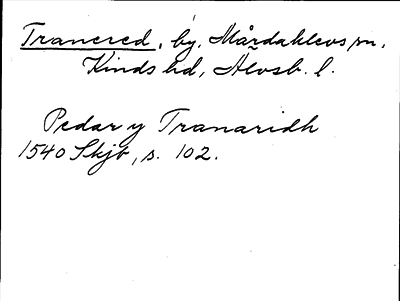 Tranered, by, Mårdaklevs sn,
Kinds hd, Älvsb. l.
Pedar y Tranaridh
1540 Skjb, s. 102.